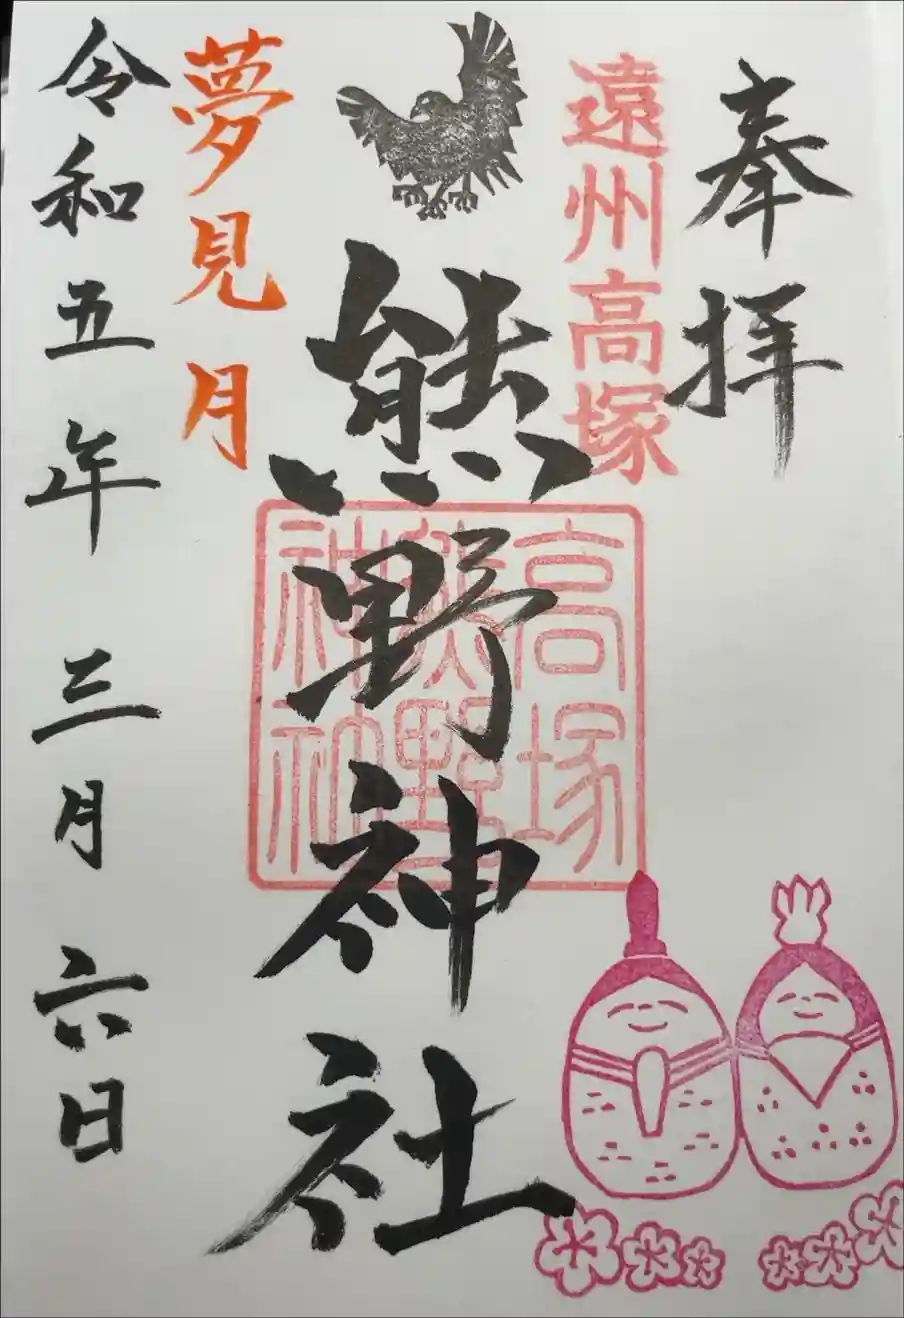 奉拝
遠州高塚
熊野神社
高塚
熊野
神社
夢見月
令和五年 三月 六日